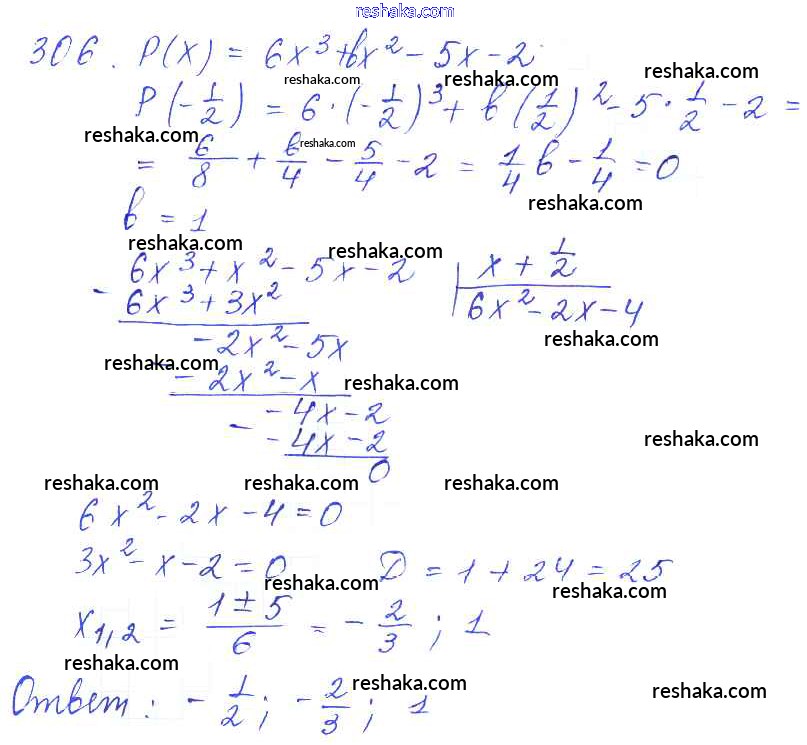 reshaka.com
306. P(x) = 6x³+bx²-5x-2
reshaka.com reshaka.com
P(-1/2) = 6·(-1/2)³ + b(1/2)² - 5·1/2 - 2 =
reshaka.com reshaka.com
= 6/8 + b/4 - 5/4 - 2 = 1/4 b - 1/4 = 0
reshaka.com
b = 1
reshaka.com reshaka.com
- 6x³ + x² - 5x - 2 | x + 1/2
6x³ + 3x² 6x² - 2x - 4
reshaka.com
- 2x² - 5x
reshaka.com
- - 2x² - x
reshaka.com
- 4x - 2
- - 4x - 2
reshaka.com
0
reshaka.com reshaka.com reshaka.com
6x² - 2x - 4 = 0
3x² - x - 2 = 0 D = 1 + 24 = 25
reshaka.com reshaka.com
x1,2 = 1±5/6 = -2/3 ; 1
reshaka.com reshaka.com
Ответ: -1/2; -2/3; 1
reshaka.com reshaka.com